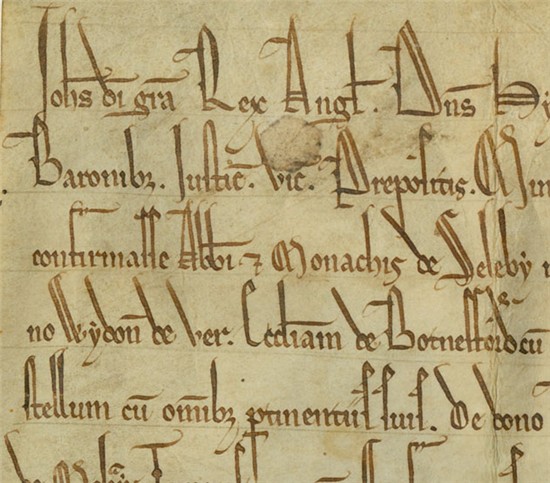 Johs di gra Rex Angl. Dns Hy
Baronibz. Justic. Vic. Prepositis. Min
confirmasse Abbi ⁊ Monachis de Seleby
no Wydon de Ver. Eccliam de Botnesford cu
stellum cu omibz ptinentiis suis. De dono